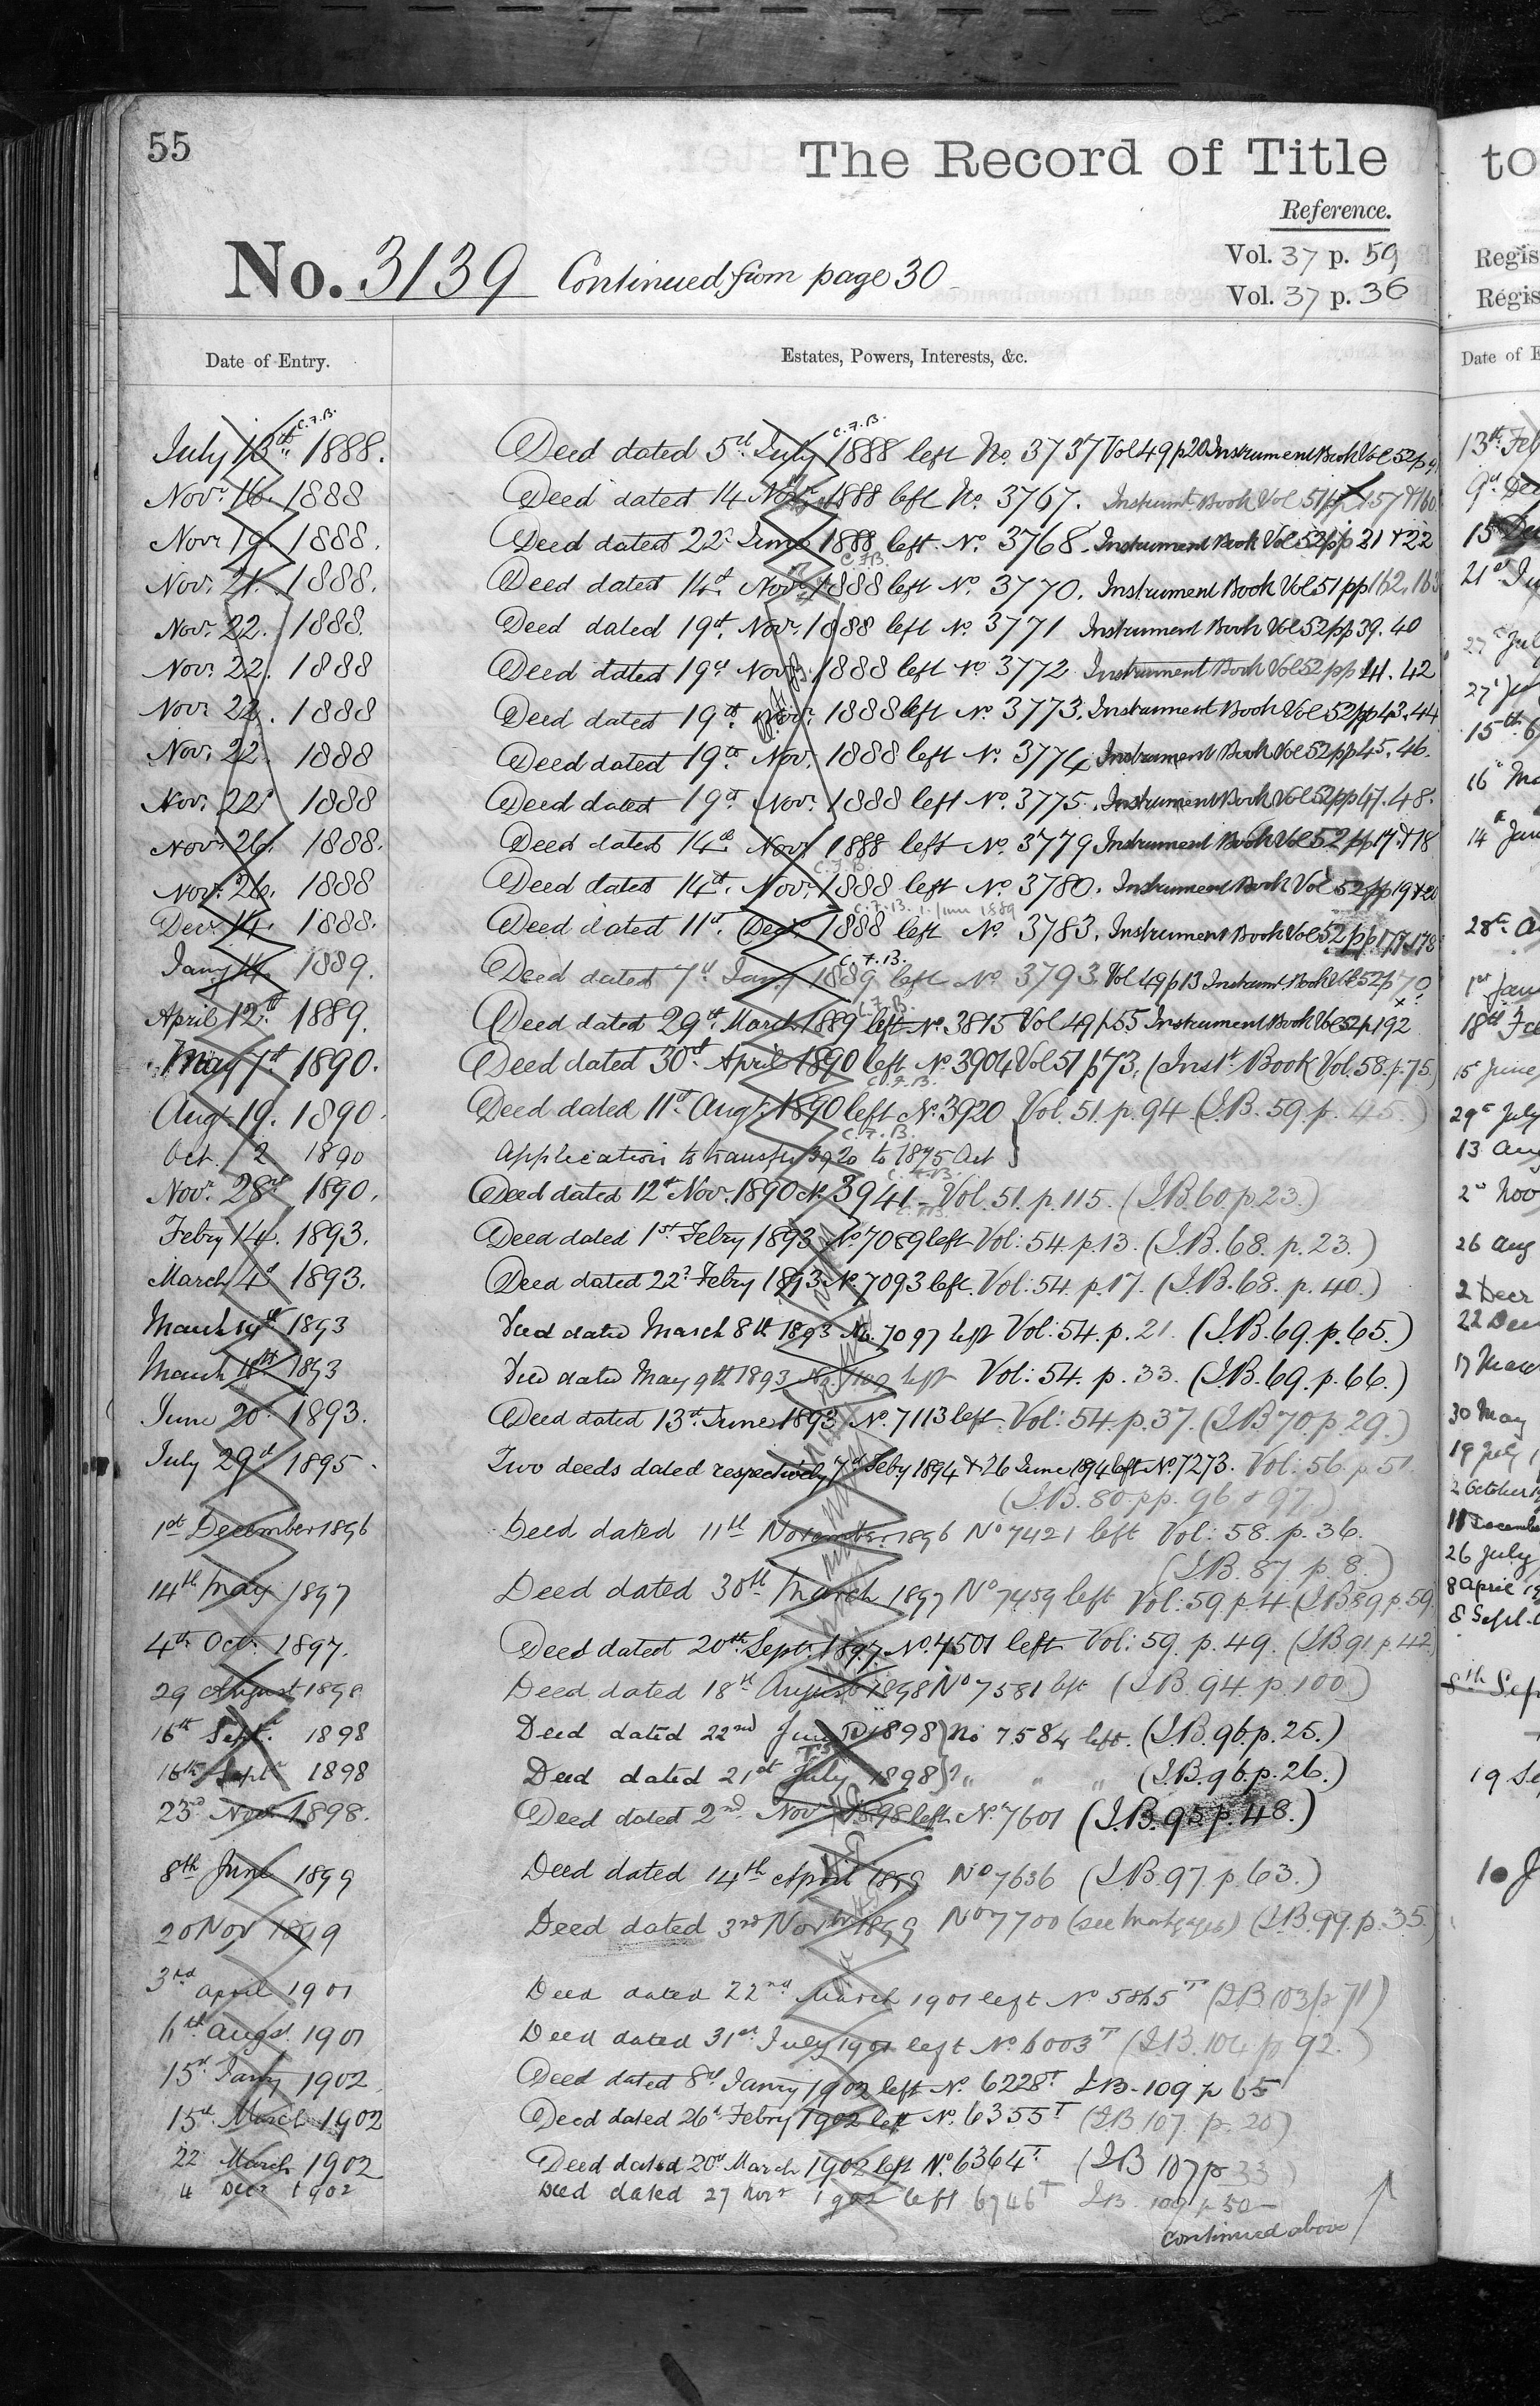 55
The Record of Title
Reference.
No. 3139 Continued from page 30
Vol. 37 p. 59
Vol. 37 p. 36
Date of Entry.
Estates, Powers, Interests, &c.
July 13th 1888. Deed dated 5th July 1888 left No. 3737 Vol 49 p20 Instrument Book Vol 52 p
Novr. 16. 1888 Deed dated 14 Novr. 1888 left No. 3767. Instrumt. Book Vol 51 p 157 & 160
Novr 19. 1888. Deed dated 22d June 1888 left No. 3768. Instrument Book Vol 52 pp 21 & 22
Nov. 21. 1888. Deed dated 14th Novr. 1888 left No. 3770. Instrument Book Vol 51 pp 162. 163
Nov. 22. 1888. Deed dated 19th. Novr. 1888 left No. 3771 Instrument Book Vol 52 pp 39. 40
Nov. 22. 1888 Deed dated 19th Novr. 1888 left No. 3772 Instrument Book Vol 52 pp 41. 42
Novr 22. 1888 Deed dated 19th. Novr. 1888 left No. 3773. Instrument Book Vol 52 pp 43. 44
Nov. 22. 1888 Deed dated 19th. Nov. 1888 left No. 3774 Instrument Book Vol 52 pp 45. 46.
Nov. 22d 1888 Deed dated 19th. Nov. 1888 left No. 3775. Instrument Book Vol 52 pp 47. 48.
Nov. 26. 1888. Deed dated 14th. Novr. 1888 left No. 3779 Instrument Book Vol 52 pp 17 & 18
Nov. 26. 1888 Deed dated 14th. Novr. 1888 left No. 3780. Instrument Book Vol 52 pp 19 & 20
Decr 14. 1888. Deed dated 11th. Decr. 1888 left No. 3783. Instrument Book Vol 52 pp 177, 178
Jany 14. 1889. Deed dated 7th Jany 1889 left No 3793. Vol 49 p 13 Instrumt. Book Vol 52 p 70
April 12th 1889. Deed dated 29th. March 1889 left No. 3815 Vol 49 p 55 Instrument Book Vol 52 p 192
May 7th 1890. Deed dated 30th April 1890 left No. 3904 Vol 51 p 73. (Inst. Book Vol. 58. p. 75.)
Augt. 19. 1890. Deed dated 11th Augt. 1890 left No. 3920 Vol. 51. p. 94 (I.B. 59. p. 45.)
Oct. 2 1890 Application to transfer 3920 to 1875 Act
Novr. 28th 1890. Deed dated 12th Nov. 1890 No. 3941 Vol. 51. p. 115. (I.B. 60. p. 23.)
Febry 14. 1893. Deed dated 1st. Febry 1893 No. 7089 left Vol: 54. p. 13. (I.B. 68. p. 23.)
March 4th 1893. Deed dated 22d Febry 1893 No. 7093 left. Vol: 54. p. 17. (I.B. 68. p. 40.)
March 14th 1893 Deed dated March 8th 1893 No. 7097 left Vol: 54. p. 21. (I.B. 69. p. 65.)
March 18th 1893 Deed dated May 9th 1893 No. 7109 left Vol: 54. p. 33. (I.B. 69. p. 66.)
June 20th. 1893. Deed dated 13th June 1893 No. 7113 left Vol: 54. p. 37. (I.B 70. p. 29.)
July 29th 1895. Two deeds dated respectively 7th Feby 1894 & 26 June 1894 left No. 7273. Vol: 56. p. 51.
(I.B. 80. pp. 96 & 97.)
1st December 1896 Deed dated 11th November 1896 No 7421 left Vol: 58. p. 36.
(I.B. 87. p. 8.)
14th May 1897 Deed dated 30th March 1897 No 7459 left Vol: 59. p. 4. (I.B 89. p. 59.
4th Oct. 1897. Deed dated 20th Sept. 1897. No. 7501 left Vol: 59. p. 49. (I.B 91. p. 42.)
29 August 1898 Deed dated 18th August 1898 No 7581 left (I.B. 94. p. 100.)
16th Sept. 1898 Deed dated 22nd June 1898) No 7584 left. (I.B. 96. p. 25.)
16th Sept. 1898 Deed dated 21st July 1898) " " " (I.B. 96. p. 26.)
23rd Novr. 1898. Deed dated 2nd. Novr 1898 left No. 7601 (I.B. 95. p. 48.)
8th June 1899 Deed dated 14th April 1899 No 7636 (I.B. 97. p. 63.)
20 Nov 1899 Deed dated 3rd Novr 1899 No 7700 (see Mortgages) (I.B. 99. p. 35.)
3rd april 1901 Deed dated 22nd March 1901 left No 5865T (I.B. 103 p 71)
6th augst. 1901 Deed dated 31st July 1901 left No. 6003T (I.B. 104 p 92.)
15th Jany 1902. Deed dated 8th Janry 1902 left No. 6228T I.B. 109 p 65
15th. March 1902 Deed dated 26th Febry 1902 left No. 6355T (I.B. 107. p. 20)
22 March 1902 Deed dated 20th March 1902 left No. 6364T (I.B 107 p 33)
4 Decr 1902 Deed dated 27 Novr 1902 left 6746T I.B. 109 p 50
Continued above
to
Regis
Régis
Date of E
13th Feb
15
21st
27th Jul
15th
16
14
28th
1st Jany
18th Feb
15 June
29th July
13 Aug
2d Nov
26 Aug
2 Decr
22 Dec
17 March
30 May
19 July
2 October
11 Decembe
26 July
8 April
8 Sept.
8th Sep
19 Se
10 J